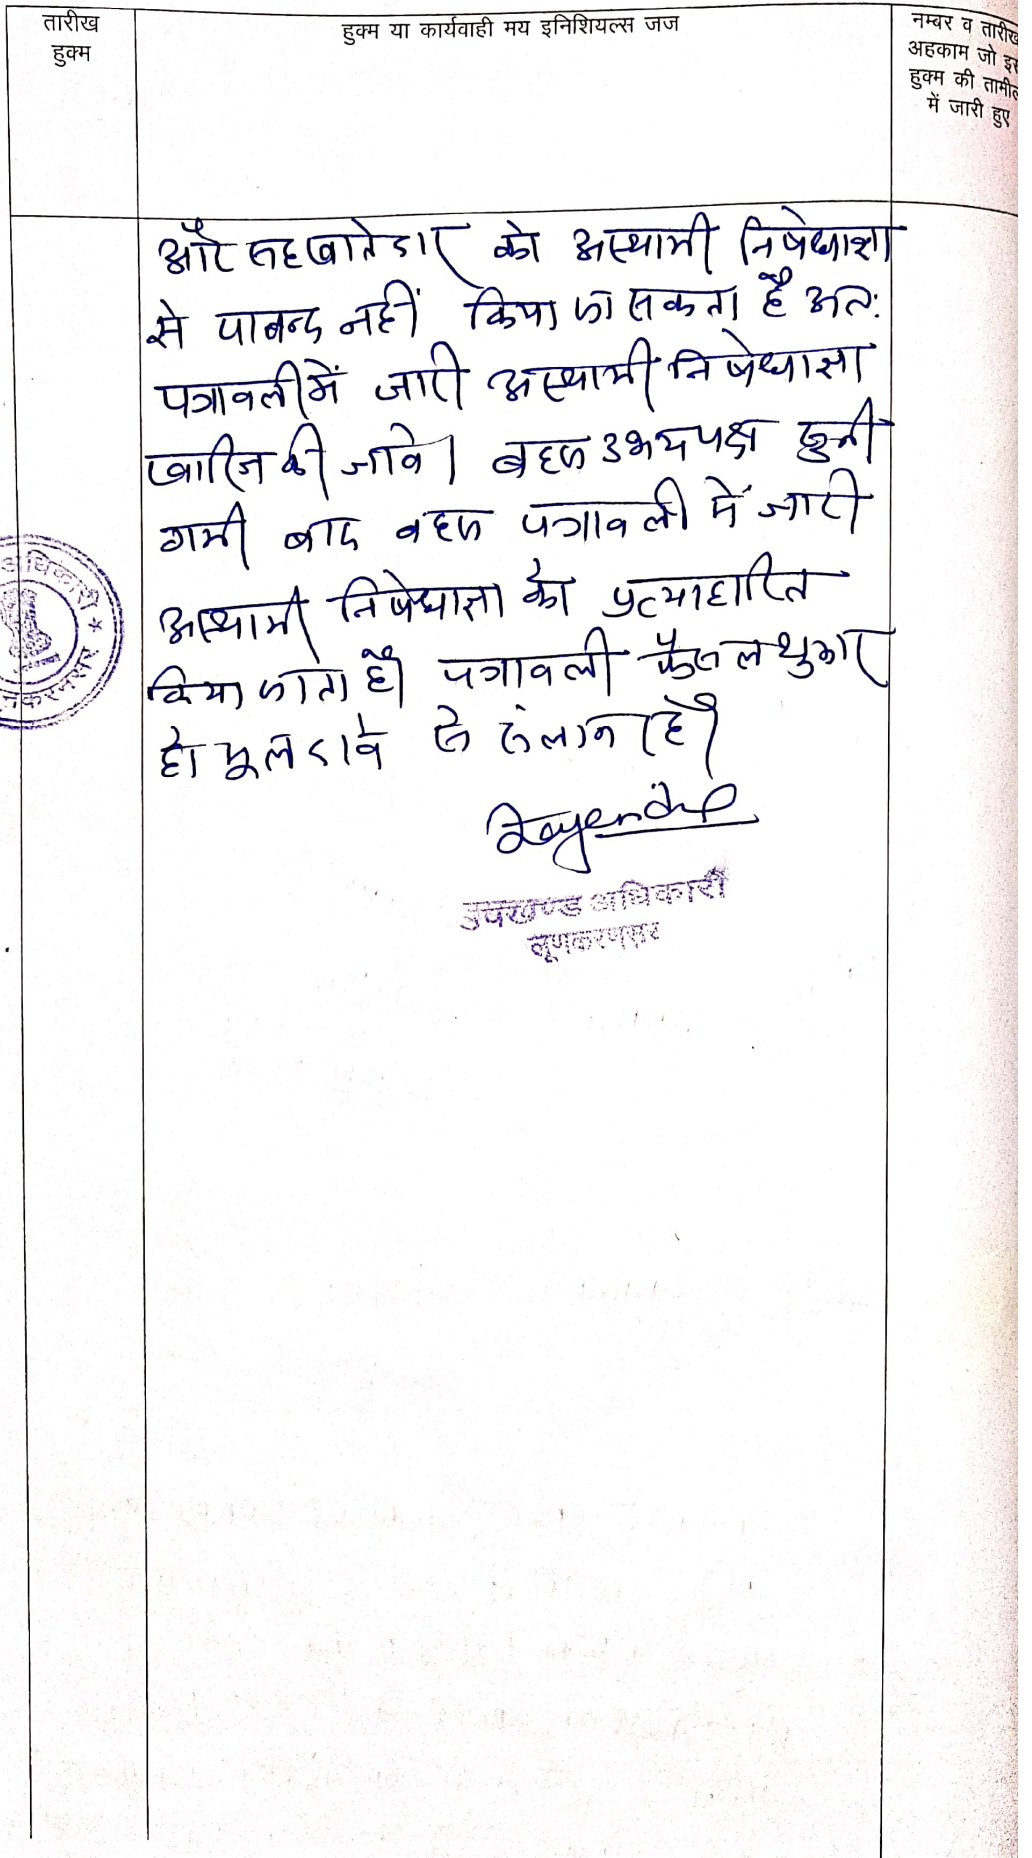 तारीख
हुक्म
हुक्म या कार्यवाही मय इनिशियल्स जज
नम्बर व तारीख
अहकाम जो इस
हुक्म की तामील
में जारी हुए
और सहखातेदार को अस्थायी निषेधाज्ञा
से पाबन्द नहीं किया जा सकता है अतः
पत्रावली में जारी अस्थायी निषेधाज्ञा
खारिज की जावे। बहस उभयपक्ष सुनी
गयी बाद बहस पत्रावली में जारी
अस्थायी निषेधाज्ञा को प्रत्याहारित
किया जाता है। पत्रावली फैसल शुमार
हो मूल दावे से संलग्न रहे।
उपखण्ड अधिकारी
लूणकरणसर
अधिकारी